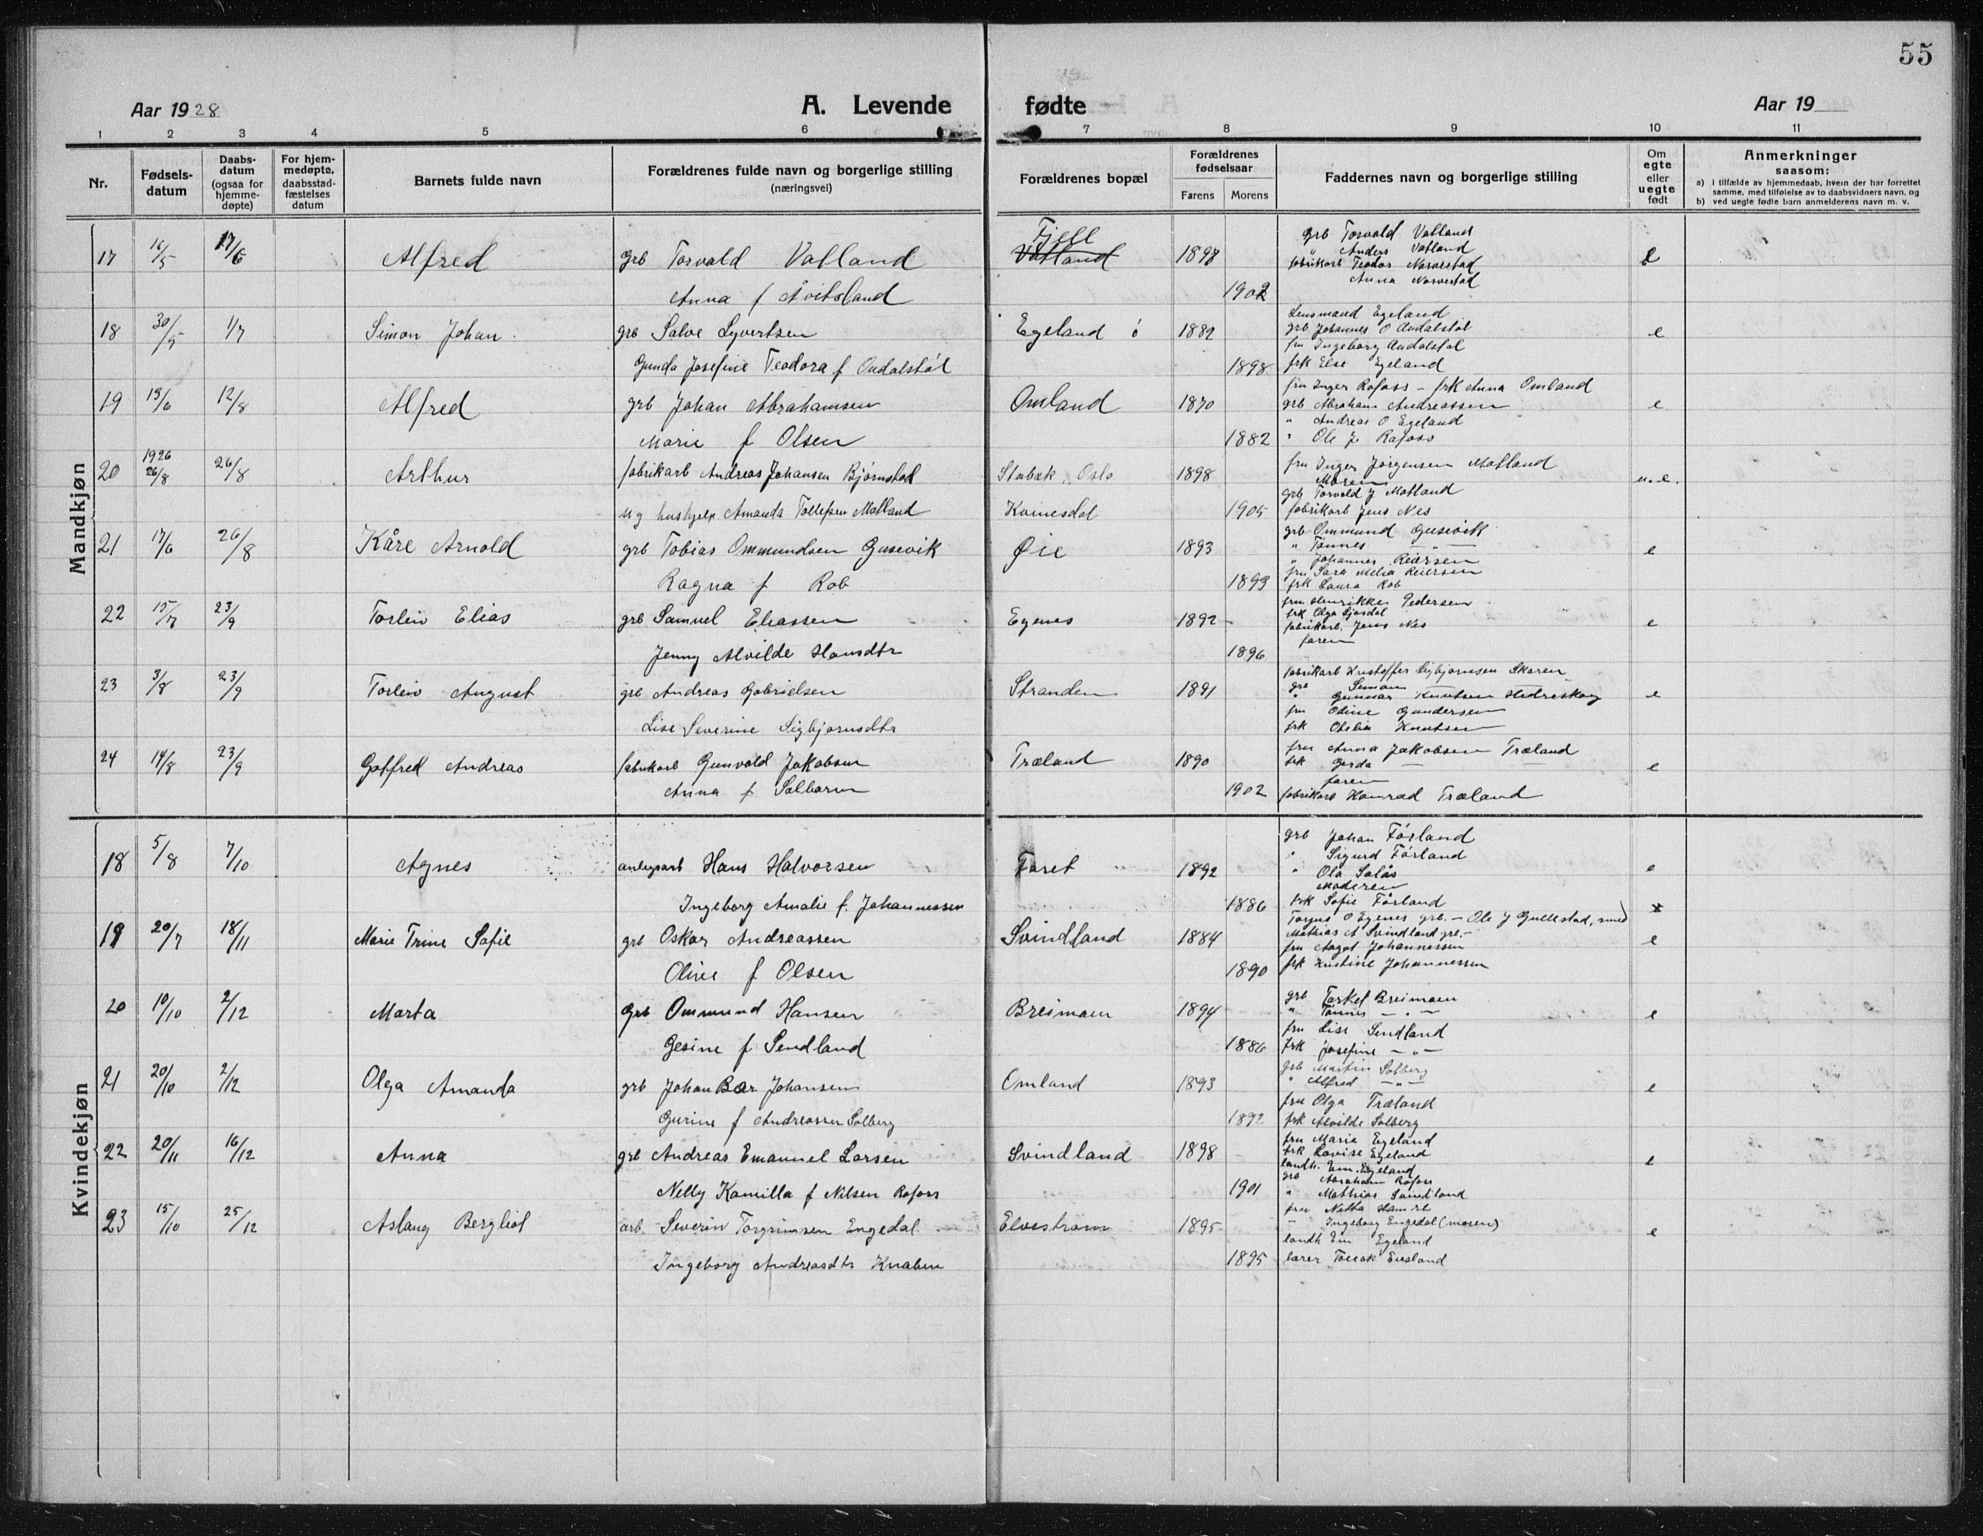 55
Aar 1928 A. Levende fødte Aar 19
1 2 3 4 5 6 7 8 9 10 11
Nr.
Fødsels-
datum
Daabs-
datum
(ogsaa for
hjemme-
døpte)
For hjem-
medøpte,
daabsstad-
fæstelses
datum
Barnets fulde navn
Forældrenes fulde navn og borgerlige stilling
(næringsvei)
Forældrenes bopæl
Forældrenes
fødselsaar
Farens Morens
Faddernes navn og borgerlige stilling
Om
egte
eller
uegte
født
Anmerkninger
saasom:
a) i tilfælde av hjemmedaab, hvem der har forrettet
samme, med tilføielse av to daabsvidners navn, og
b) ved uegte fødte barn anmelderens navn m. v.
Mandkjøn
17 16/5 17/6 Alfred grb Torvald Vatland Fjell Vatland 1898 e
Anna f Åvitsland 1902
grb Torvald Vatland
" Anders Vatland
fabrikarb Teodor Narvestad
Anna Narvestad
18 30/5 1/7 Simon Johan grb Salve Syvertsen Egeland ö 1882 e
Gunda Josefine Teodora f Audalstøl 1898
Lensmand Egeland
grb Johannes O Audalstøl
fru Ingeborg Audalstøl
frk Else Egeland
19 13/6 12/8 Alfred grb Johan Abrahamsen Omland 1870 e
Marie f Olsen 1882
fru Inger Rafoss - frk Anna Omland
grb Abraham Andreassen
" Andreas O Egeland
" Ole J Rafoss
20 1926 26/8 26/8 Arthur fabrikarb Andreas Johansen Bjørnstad Stabæk, Oslo 1898 u.e.
Ug hushjelp Amanda Tollefsen Matland Kvinesdal 1905
fru Inger Jørgensen Matland
Moren
grb Torvald J Matland
fabrikarb Jens Nes
21 17/6 26/8 Kåre Arnold grb Tobias Ommundsen Gusevik Øie 1893 e
Ragna f Rob 1893
grb Ommund Gusevik
" Tønnes — " —
" Johannes Reiersen
fru Sara Melia Reiersen
frk Laura Rob
22 15/7 23/9 Torleiv Elias grb Samuel Eliassen Egenes 1892 e
Jenny Alvilde Hansdtr 1896
fru Henrikke Pedersen
frk Olga Gjosdal
fabrikarb. Jens Nes
faren
23 3/8 23/9 Torleiv August grb Andreas Gabrielsen Stranden 1891 e
Lise Severine Sigbjørnsdtr
fabrikarb Kristoffer Sigbjørnsen Skaren
grb Simon
" Gunnar Knutsen Hedreskog
fru Odine Gundersen
frk Otelia Knutsen
24 14/8 23/9 Gotfred Andreas fabrikarb Gunvald Jakobsen Træland 1890 e
Anna f Salbarm 1902
fru Anna Jakobsen Træland
frk Gerda — —
faren
fabrikarb Konrad Træland
Kvindekjøn
18 5/8 7/10 Agnes anlegsarb Hans Halvorsen Faret 1892 e
Ingeborg Amalie f. Johannessen 1886 x
grb Johan Førland
" Sigurd Førland
" Ola Salås
Moderen
frk Sofie Førland
19 20/7 18/11 Marie Trine Sofie grb Oskar Andreassen Svindland 1884 e
Oline f Olsen 1890
Torjus O Egenes grb. - Ole J Gullestad, smed
Mathias A Svindland grb. -
fru Aagot Johannessen
frk Kristine Johannessen
20 10/10 2/12 Marta Grb Ommund Hansen Breimoen 1894 e
Gesine f Sendland 1886
grb Torkel Breimoen
" Tønnes — " —
fru Lise Sendland
frk Josefine — " —
21 20/10 2/12 Olga Amanda grb Johan Bær Johansen Omland 1893 e
Gurine f Andreassen Solberg 1892
grb Martin Solberg
" Alfred — " —
fru Olga Træland
frk Alvilde Solberg
22 20/11 16/12 Anna grb Andreas Emanuel Larsen Svindland 1898 e
Nelly Kamilla f Nilsen Rafoss 1901
fru Marie Egeland
frk Lovise Egeland
landh. Em. Egeland
grb Abraham Rafoss
" Mathias Sundland
23 15/10 25/12 Aslaug Bergliot arb. Severin Torgrimsen Engedal Elvestrøm 1895 e
Ingeborg Andreasdtr Knaben 1895
fru Netta
" Ingeborg Engedal (moren)
landh Em Egeland
lærer Tollak Eiesland